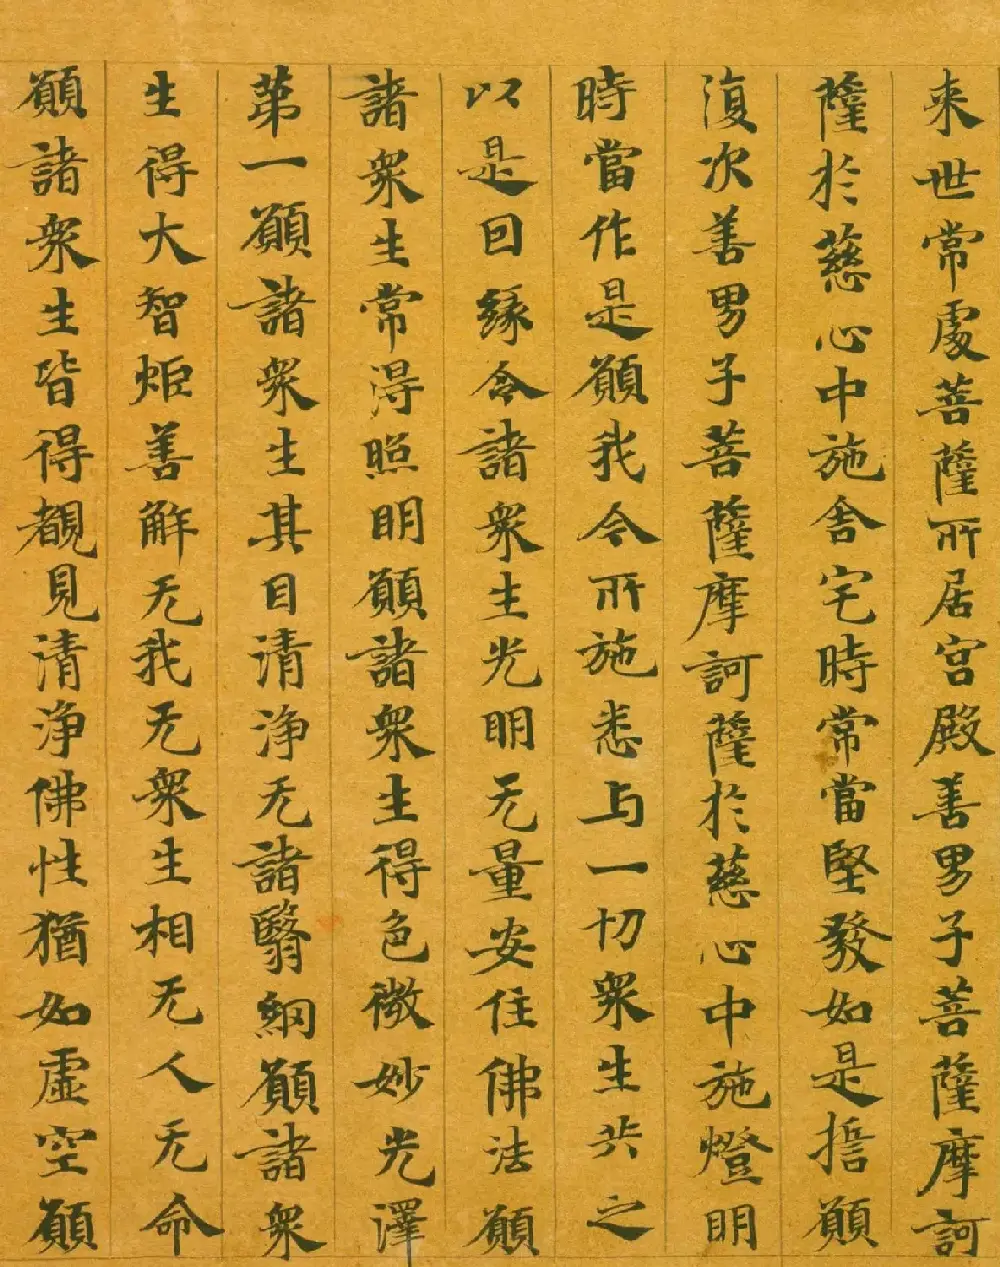 来世常處菩薩所居宮殿善男子菩薩摩訶
薩於慈心中施舍宅時常當堅發如是誓願
復次善男子菩薩摩訶薩於慈心中施燈明
時當作是願我今所施悉与一切衆生共之
以是因緣令諸衆生光明无量安住佛法願
諸衆生常得照明願諸衆生得色微妙光澤
第一願諸衆生其目清淨无諸翳網願諸衆
生得大智炬善解无我无衆生相无人无命
願諸衆生皆得覩見清淨佛性猶如虛空願